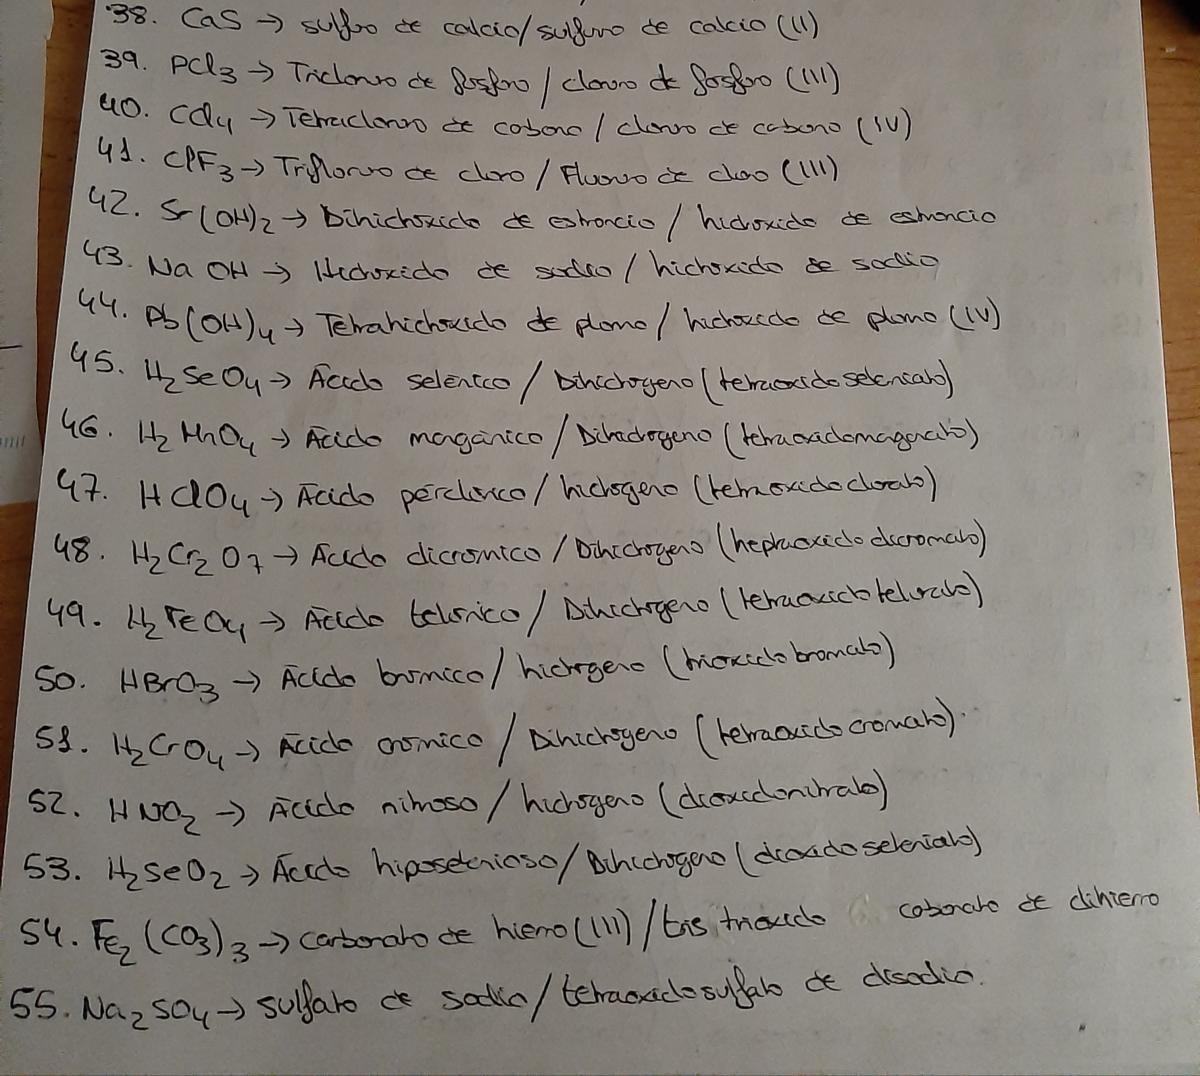 38. CaS → sulfuro de calcio/sulfuro de calcio (II)
39. PCl3 → Tricloruro de fosforo / cloruro de fosforo (III)
40. CCl4 → Tetracloruro de carbono / cloruro de carbono (IV)
41. ClF3 → Trifloruro de cloro / Fluoruro de cloro (III)
42. Sr(OH)2 → Dihidroxido de estroncio / hidroxido de estroncio
43. NaOH → Hidroxido de sodio / hidroxido de sodio
44. Pb(OH)4 → Tetrahidroxido de plomo / hidroxido de plomo (IV)
45. H2SeO4 → Ácido selénico / Dihidrogeno (tetraoxidoseleniato)
46. H2MnO4 → Ácido magánico / Dihidrogeno (tetraoxidomaganato)
47. HClO4 → Ácido perclórico / hidrogeno (tetraoxidoclorato)
48. H2Cr2O7 → Ácido dicrómico / Dihidrogeno (heptaoxidodicromato)
49. H2TeO4 → Ácido telúrico / Dihidrogeno (tetraoxidotelurato)
50. HBrO3 → Ácido brómico / hidrógeno (trioxidobromato)
51. H2CrO4 → Ácido crómico / Dihidrógeno (tetraoxidocromato).
52. HNO2 → Ácido nitroso / hidrógeno (dioxidonitrato)
53. H2SeO2 → Ácido hiposelenioso / Dihidrogeno (dioxidoseleniato)
54. Fe2(CO3)3 → carbonato de hierro (III) / tris trioxido carbonato de dihierro
55. Na2SO4 → sulfato de sodio / tetraoxidosulfato de disodio.